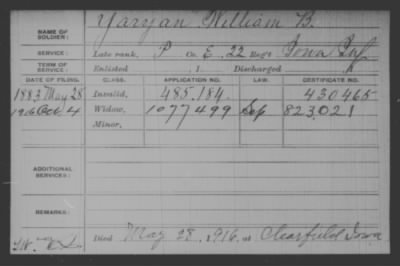 NAME OF SOLDIER: Yaryan William B.
SERVICE: Late rank, P Co. E, 22 Reg't Iowa Inf
TERM OF SERVICE: Enlisted 1 Discharged
DATE OF FILING. CLASS. APPLICATION NO. LAW. CERTIFICATE NO.
1883 May 28 Invalid, 485.184. 430465
1916 Oct 4 Widow, 1077499 Sep 823,021
Minor,
ADDITIONAL SERVICES:
REMARKS:
Died May 28, 1916, at Clearfield Iowa